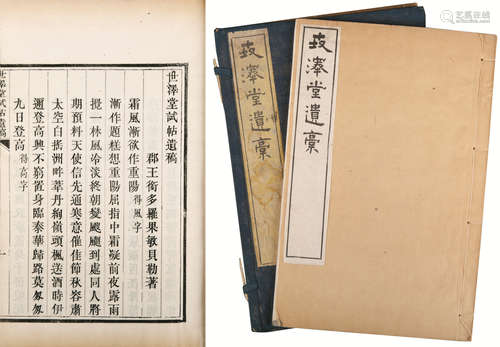 世澤堂試帖遺稿
郡王銜多羅果敏貝勒著
霜風漸欲作重陽 得風字
漸作題糕想重陽屈指中霜凝前夜露雨
攪一林風冷淡終朝變颼颼到處同人將
期預料天使信先通寒意催佳節秋容肅
太空白搖洲畔葦丹絢嶺頭楓送酒時伊
邇登高興不窮置身臨泰華歸路莫匆匆
九日登高 得高字
世澤堂試帖遺稿
澤堂遺稾
澤堂遺稾